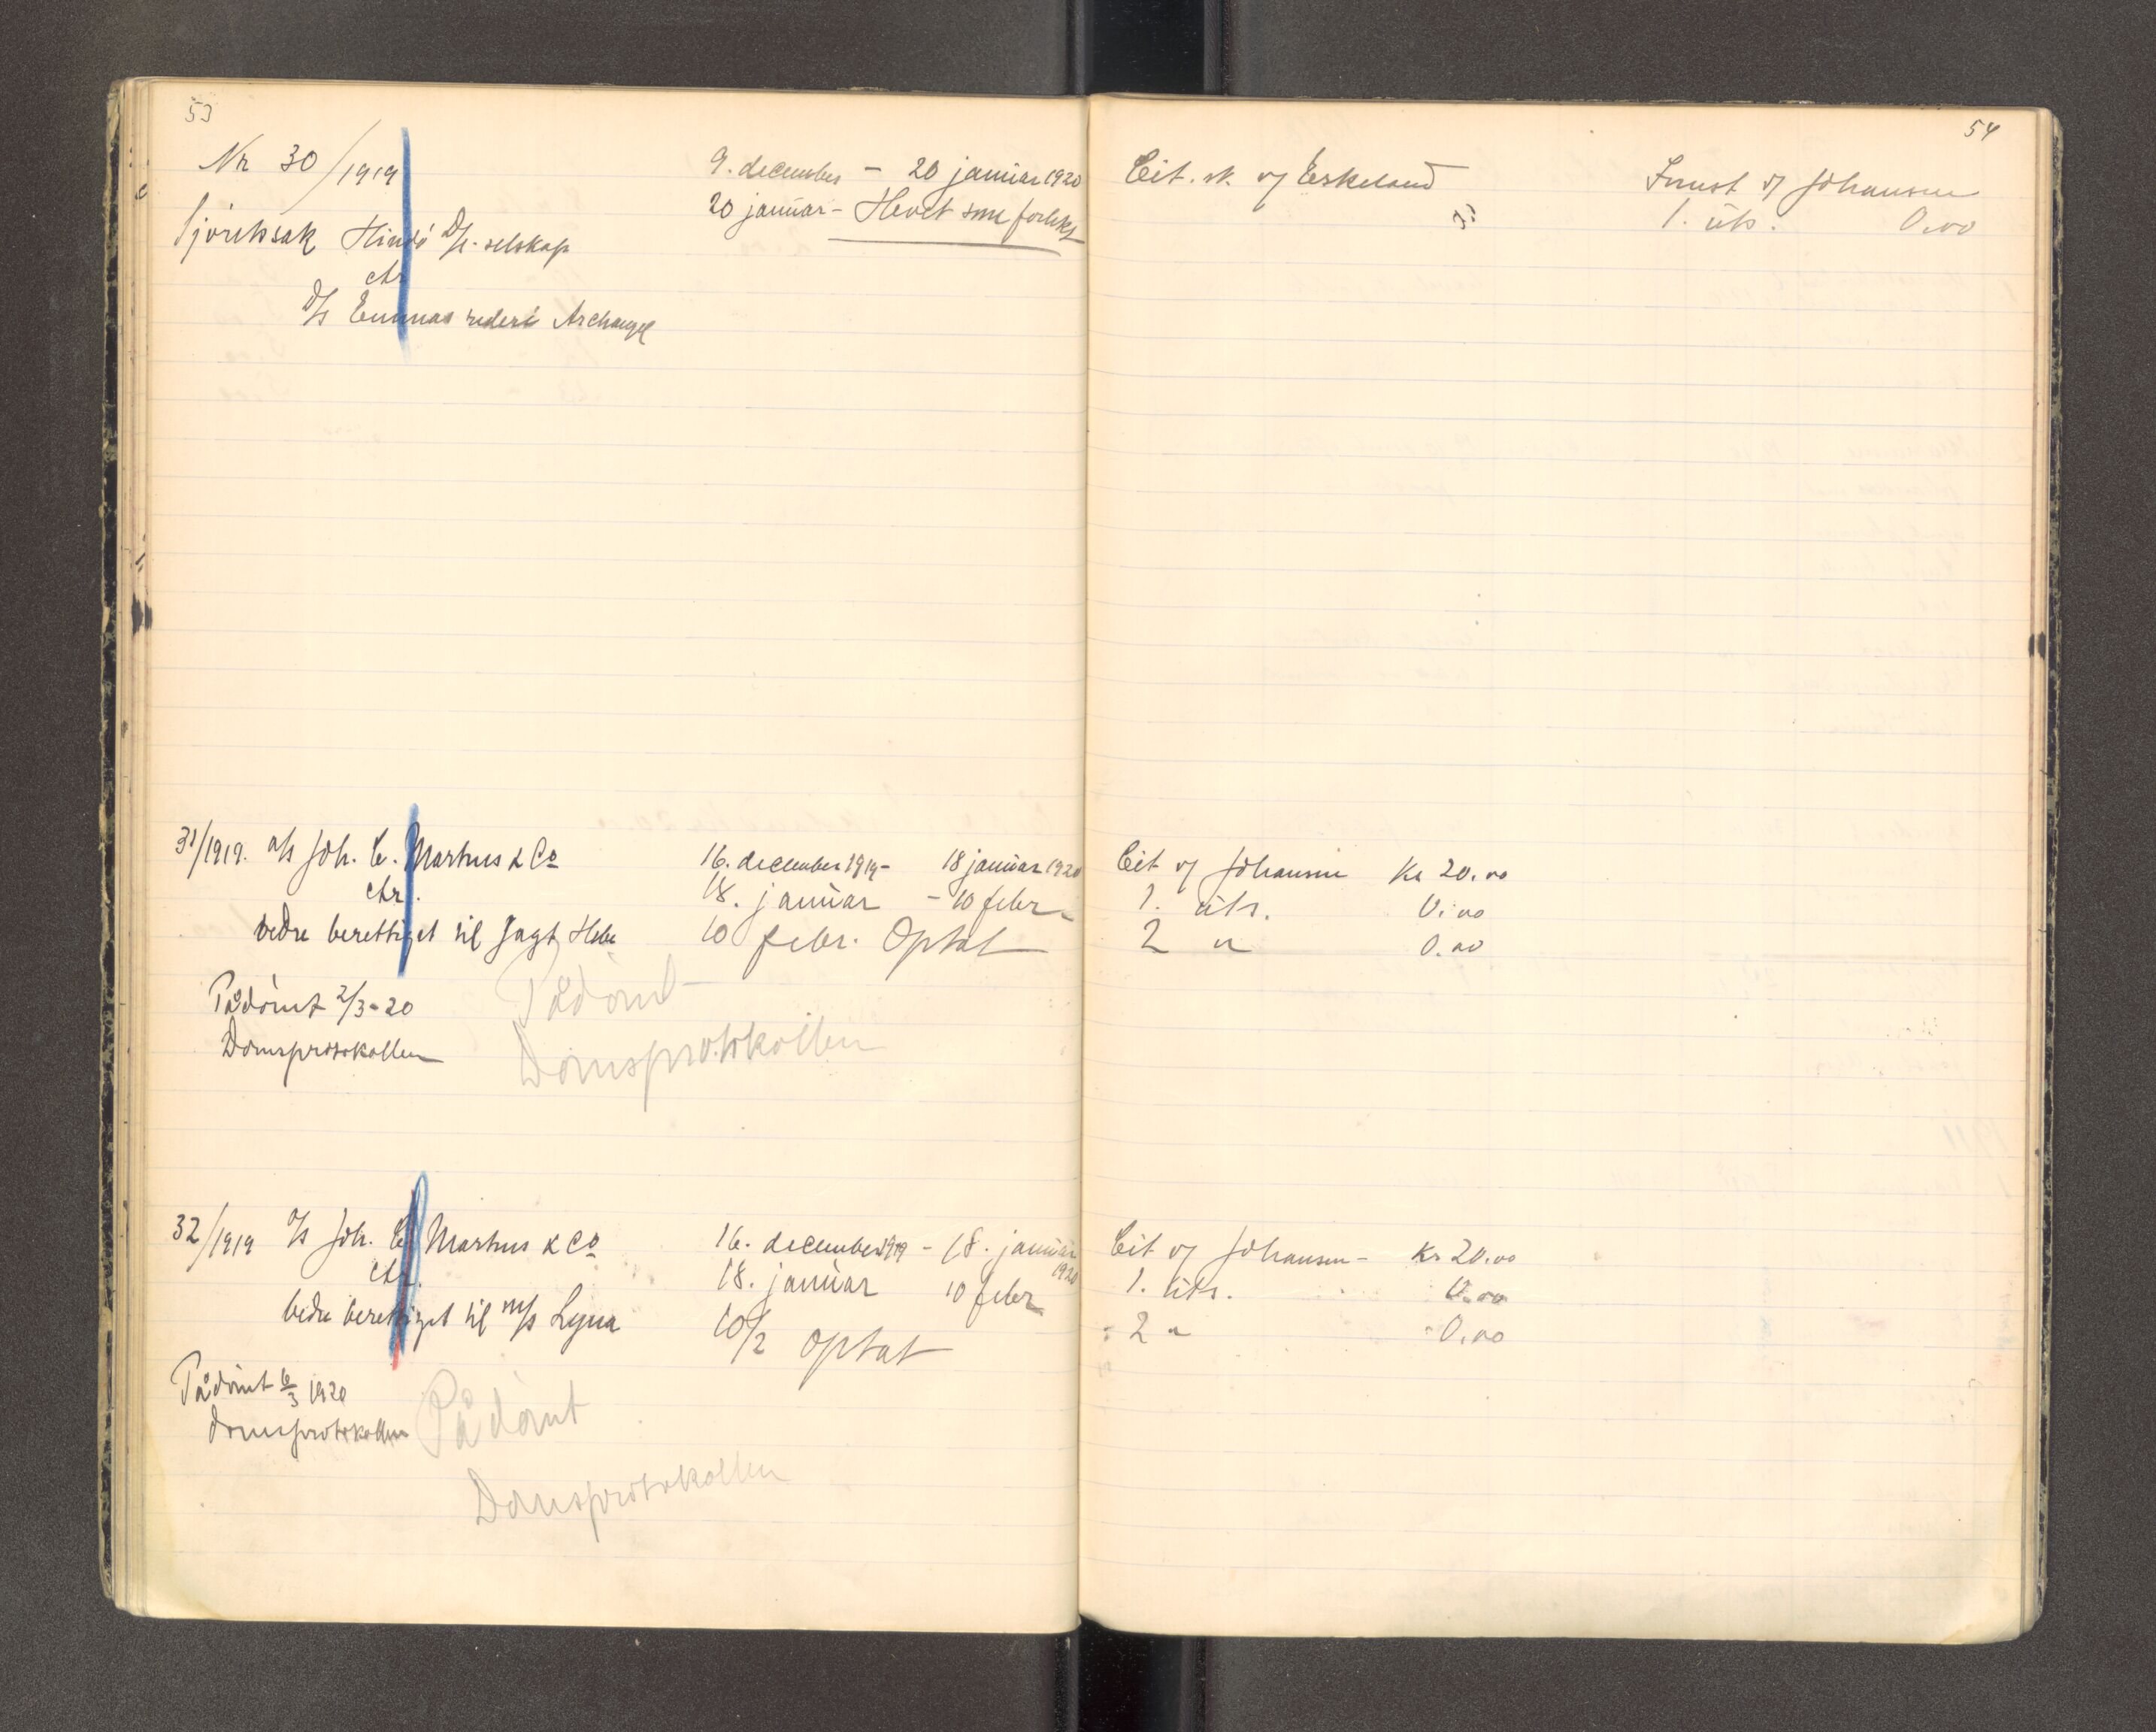 53
Nr 30/1919
Sjøretssak Hindö D/s. selskap
ctr
D/s Emmas rederi Archangel
9. december - 20 januar 1920
20 januar - Hevet som forlikt
31/1919. a/s Joh. E. Marhus & Co
ctr.
bedre berettiget til Jagt Hebe
16. december 1919 - 18 januar 1920
18. januar - 10 febr.
10 febr. Optat
Pådömt 2/3-20
Domsprotokollen
Pådömt
Domsprotokollen
32/1919 a/s Joh. E. Marhus & Co
ctr.
bedre berettiget til m/s Lyna
16. december 1919 - 18. januar 1920
18. januar 10 febr
10/2 Optat
Pådömt 6/3 1920
domsprotokollen
Pådömt
Domsprotokollen
54
Cit. v/ Eskeland
v/ Johansen
1. uts. 0.00
Cit v/ Johansen Kr 20.00
1. uts. 0.00
2 " 0.00
Cit v/ Johansen - Kr 20.00
1. uts. 0.00
2 " 0.00